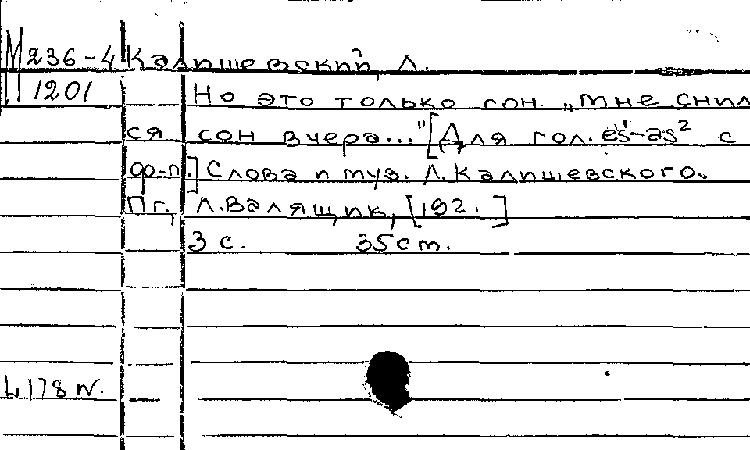 М 236-4 Калишевский, Л.
1201 Но это только сон. „Мне снил
ся сон вчера..." [Для гол. es¹-as² с
ф-п.] Слова и муз. Л. Калишевского.
Пг., Л. Валящик, [192. ]
3 с. 35 cm.
4178 N.